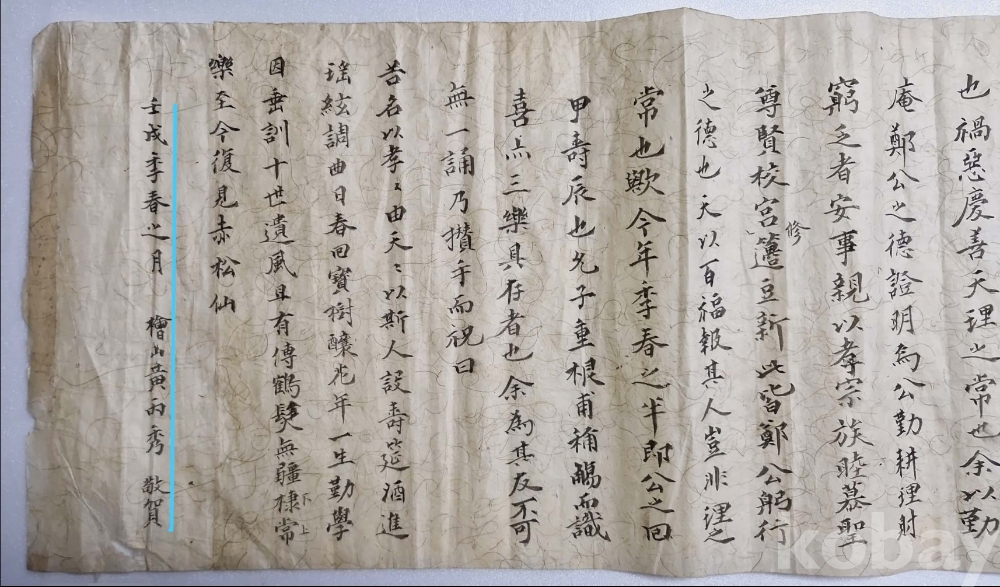 也禍惡慶善天理之常也余以勤
庵鄭公之德證明焉公勤耕理財
窮乏者安事親以孝宗族睦慕聖
尊賢校宮修籩豆新此皆鄭公躬行
之德也天以百福報其人豈非理之
常也歟今年季春之半即公之回
甲壽辰也允子重根甫稱觴而識
喜点三樂具存者也余為其友不可
無一誦乃攅手而祝曰
苦名以孝〻由天〻以斯人設壽筵酒進
瑶絃調曲日春回寶樹釀花年一生勤學
因垂訓十世遺風且有傳鶴髮無疆棣常下上
樂至今復見赤松仙
壬戌季春之月 檜山黃丙秀 敬賀
kobay